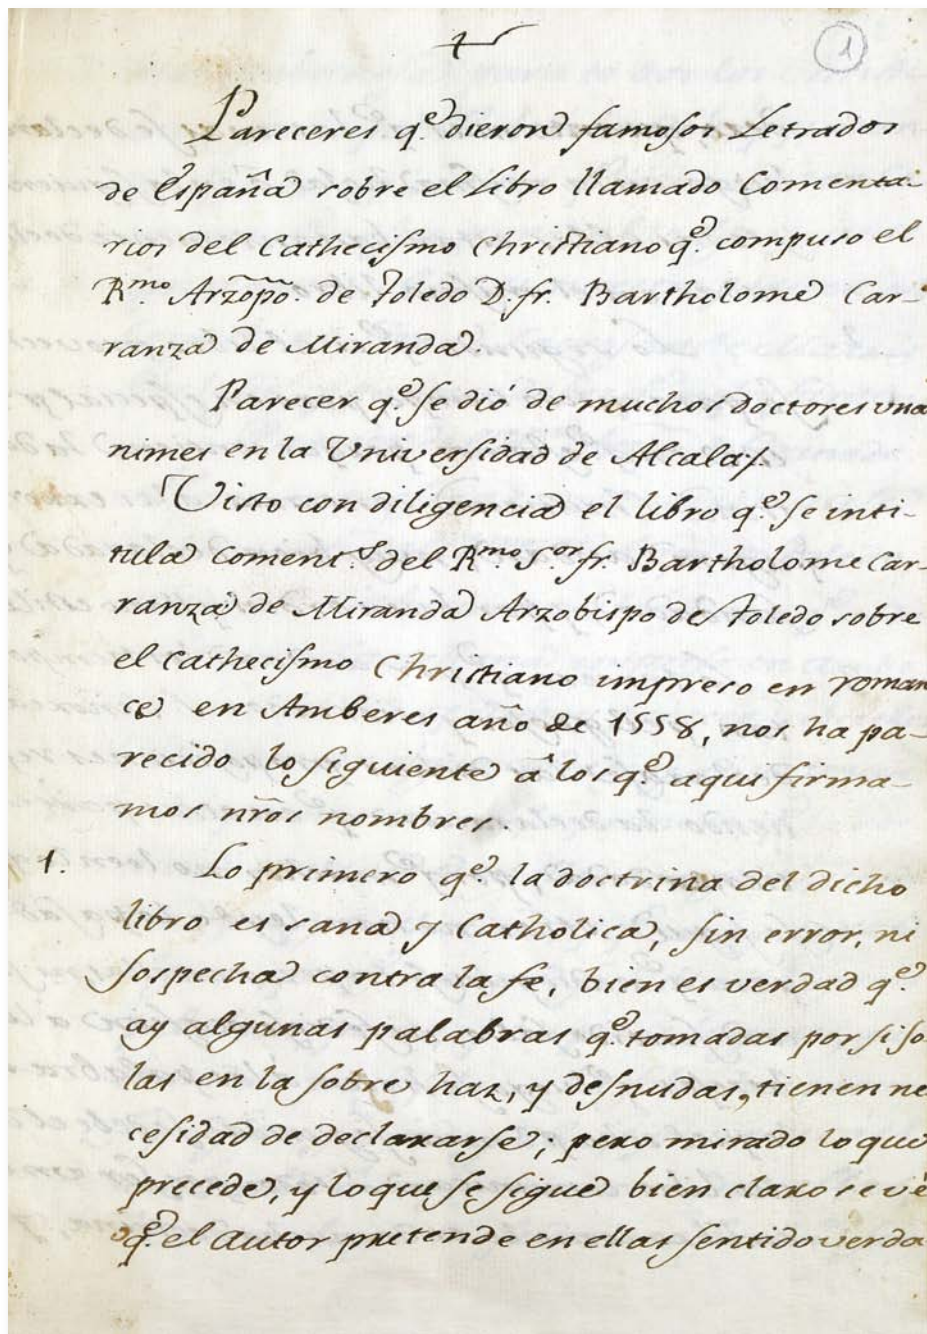 1
Pareceres q.e dieron famosos Letrados
de España sobre el Libro llamado Comenta-
rios del Cathecismo Christiano q.e compuso el
R.mo Arzopõ. de Toledo D. fr. Bartholome Car-
ranza de Miranda.
Parecer q.e se dió de muchos doctores una
nimes en la Universidad de Alcala.
Visto con diligencia el libro q.e se inti-
tula Coment.s del R.mo S.or fr. Bartholome Car-
ranza de Miranda Arzobispo de Toledo sobre
el Cathecismo Christiano impreso en roman
ce en Amberes año de 1558, nos ha pa-
recido lo siguiente â los q.e aqui firma-
mos nr̃os nombres.
1. Lo primero q.e la doctrina del dicho
libro es sana y Catholica, sin error, ni
sospecha contra la fe, bien es verdad q.e
ay algunas palabras q.e tomadas por si so
las en la sobre haz, y desnudas, tienen ne
cesidad de declararse; pero mirado lo que
precede, y lo que se sigue bien claro se vè
q.e el autor pretende en ellas sentido verda